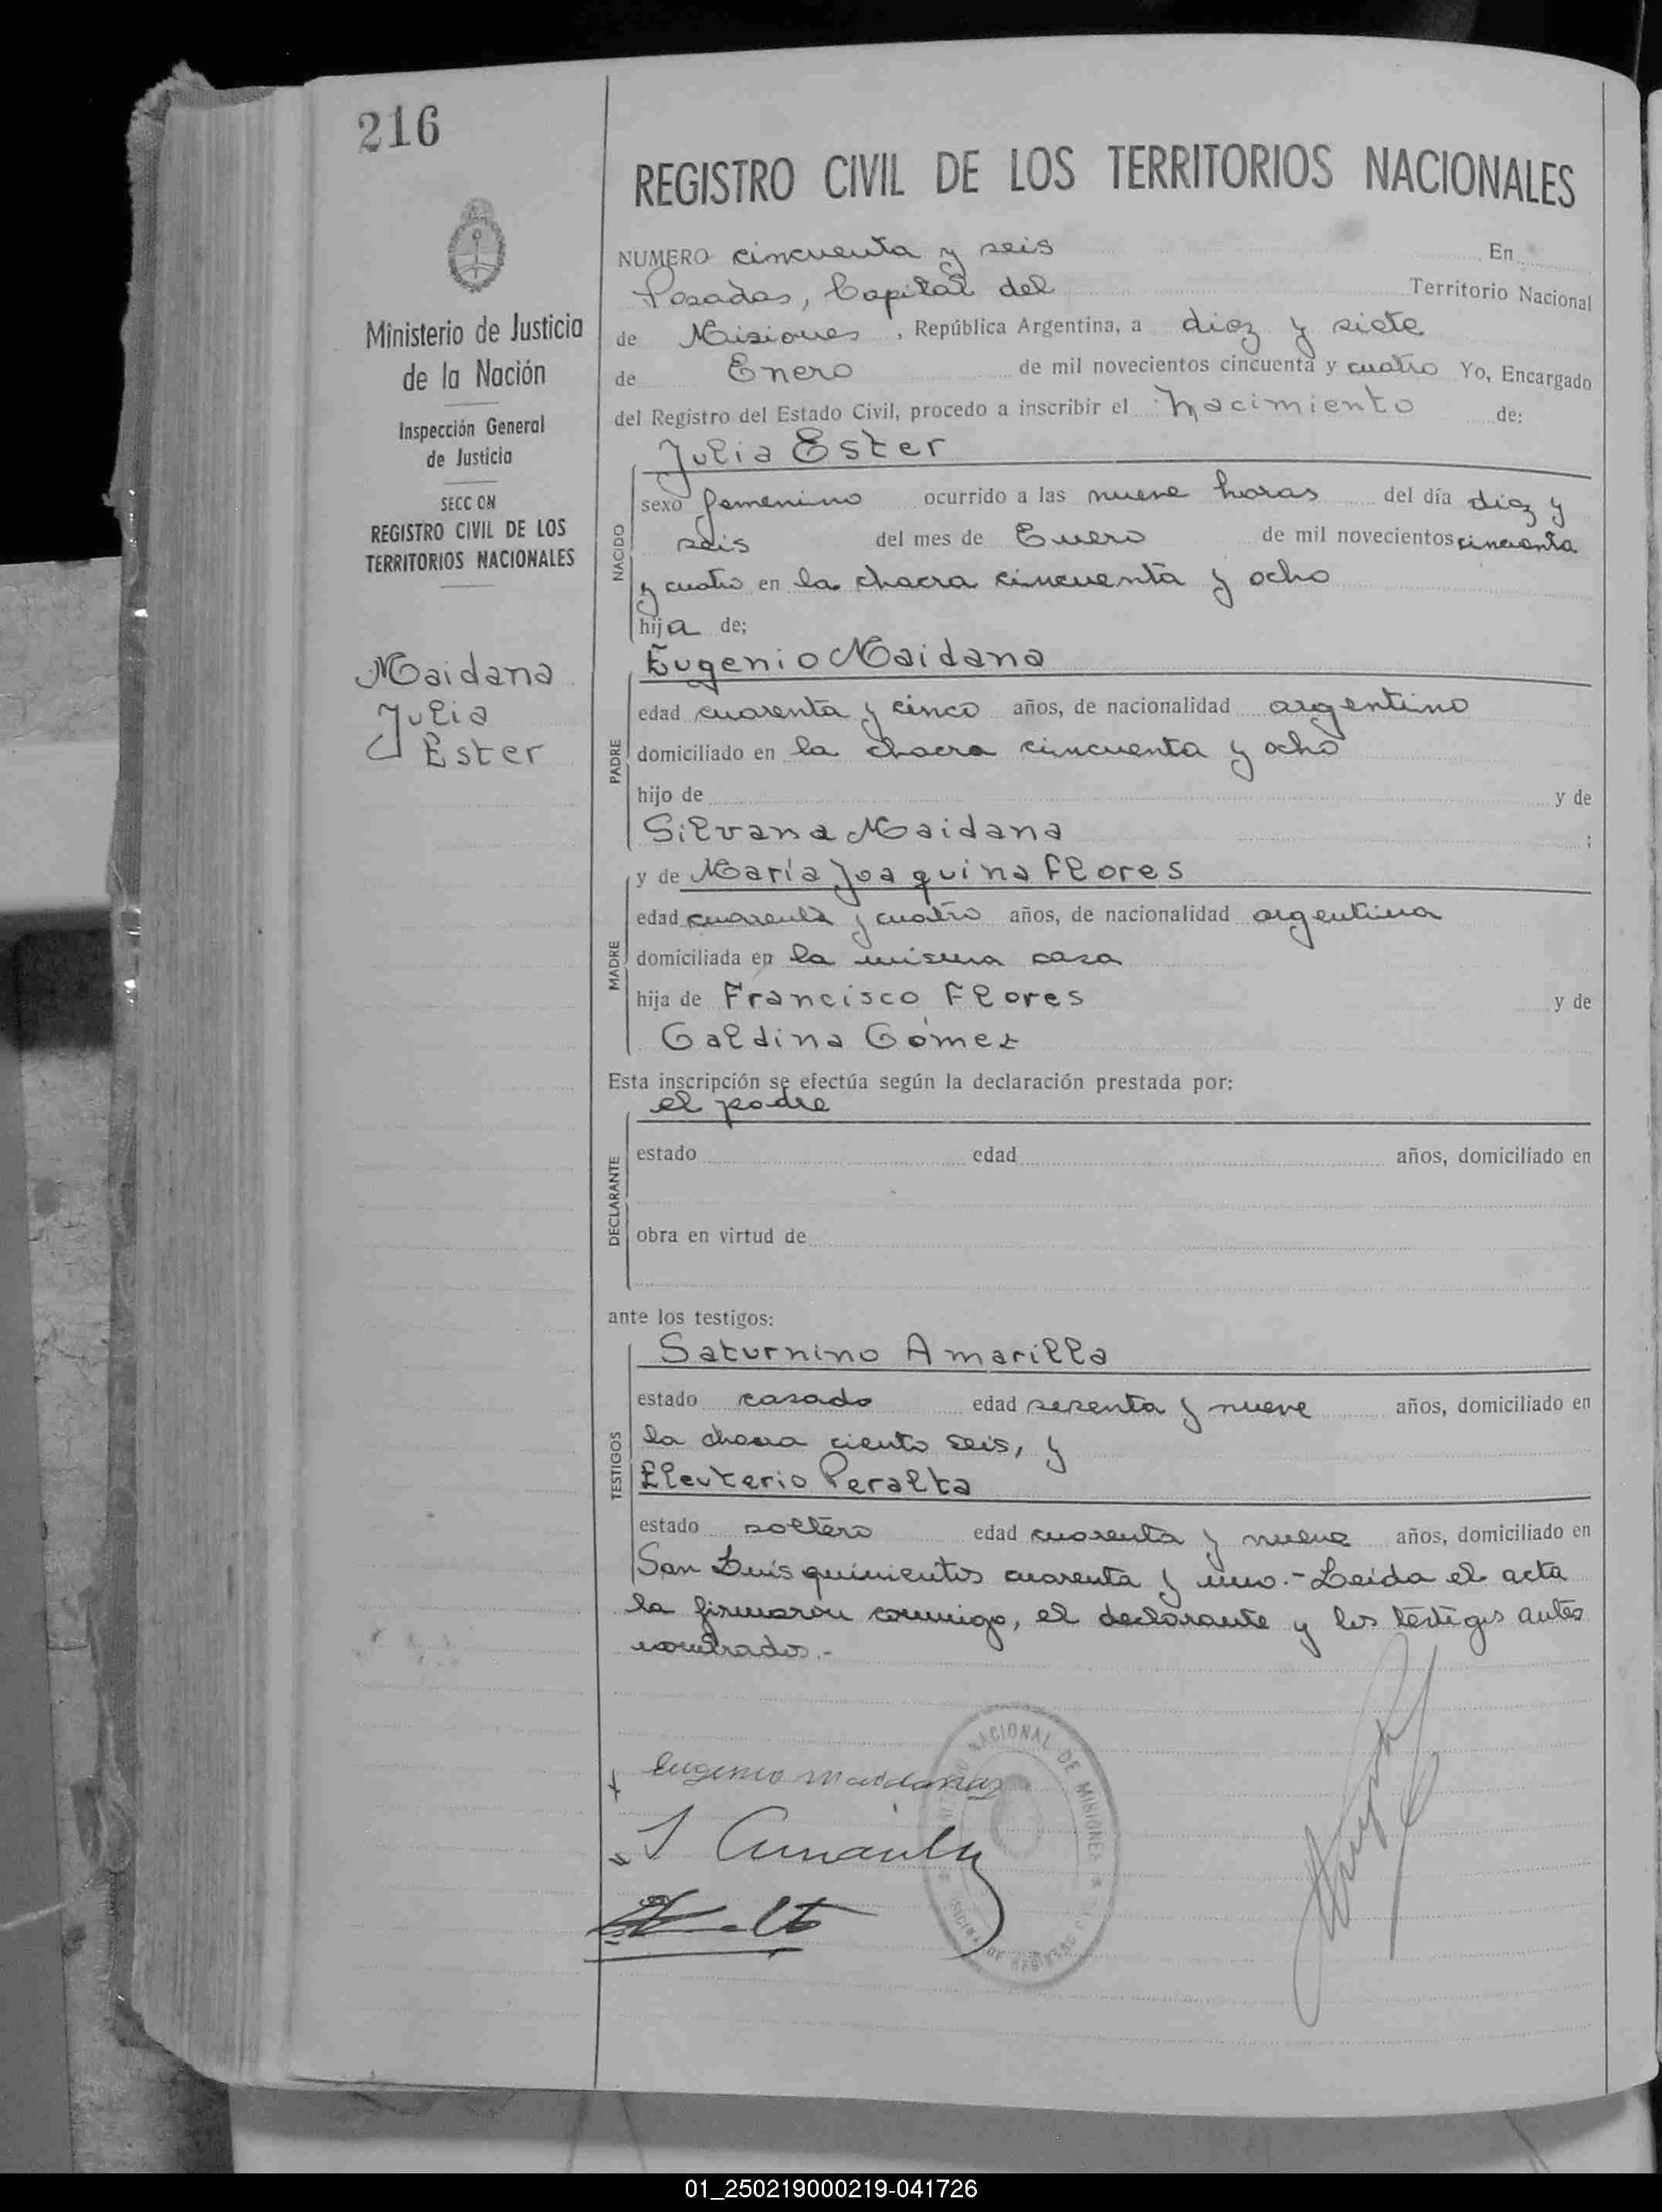 216
REGISTRO CIVIL DE LOS TERRITORIOS NACIONALES
Ministerio de Justicia
de la Nación
Inspección General
de Justicia
SECC ON
REGISTRO CIVIL DE LOS
TERRITORIOS NACIONALES
Maidana
Julia
Ester
NUMERO cincuenta y seis En
Posadas, Capital del Territorio Nacional
de Misiones, República Argentina, a diez y siete
de Enero de mil novecientos cincuenta y cuatro Yo, Encargado
del Registro del Estado Civil, procedo a inscribir el Nacimiento de:
Julia Ester
NACIDO
sexo femenino ocurrido a las nueve horas del día diez y
seis del mes de Enero de mil novecientos cincuenta
y cuatro en la chacra cincuenta y ocho
hija de;
Eugenio Maidana
PADRE
edad cuarenta y cinco años, de nacionalidad argentino
domiciliado en la chacra cincuenta y ocho
hijo de y de
Silvana Maidana ;
y de María Joaquina Flores
MADRE
edad cuarenta y cuatro años, de nacionalidad argentina
domiciliada en la misma casa
hija de Francisco Flores y de
Galdina Gómez
Esta inscripción se efectúa según la declaración prestada por:
el padre
DECLARANTE
estado edad años, domiciliado en
obra en virtud de
ante los testigos:
Saturnino Amarilla
TESTIGOS
estado casado edad sesenta y nueve años, domiciliado en
la chacra ciento seis, y
Eleuterio Peralta
estado soltero edad cuarenta y nueve años, domiciliado en
San Luis quinientos cuarenta y uno.- Leída el acta
la firmaron conmigo, el declarante y los testigos antes
nombrados.-
NACIONAL DE MISIONES
Eugenio Maidana
S Amarilla
01_250219000219-041726